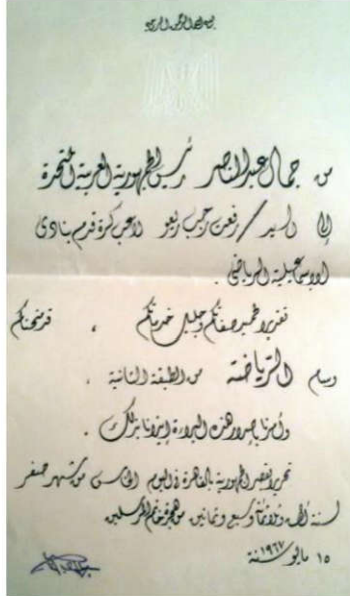 بسم الله الرحمن الرحيم
من جمال عبد الناصر رئيس الجمهورية العربية المتحدة
إلى السيد / رفعت رجب ربعو لاعب كرة قدم بنادى
الإسماعيلية الرياضى .
تقديرا لحميد صفاتكم وجليل خدماتكم ، قد منحناكم
وسام الرياضة من الطبقة الثانية ،
وأمرنا بإصدار هذه البراءة إيذانا بذلك .
تحريرا بقصر الجمهورية بالقاهرة فى اليوم الخامس من شهر صفر
لسنة ألف وثلاثمائة وسبع وثمانين من هجرة خاتم المرسلين
١٥ مايو سنة ١٩٦٧